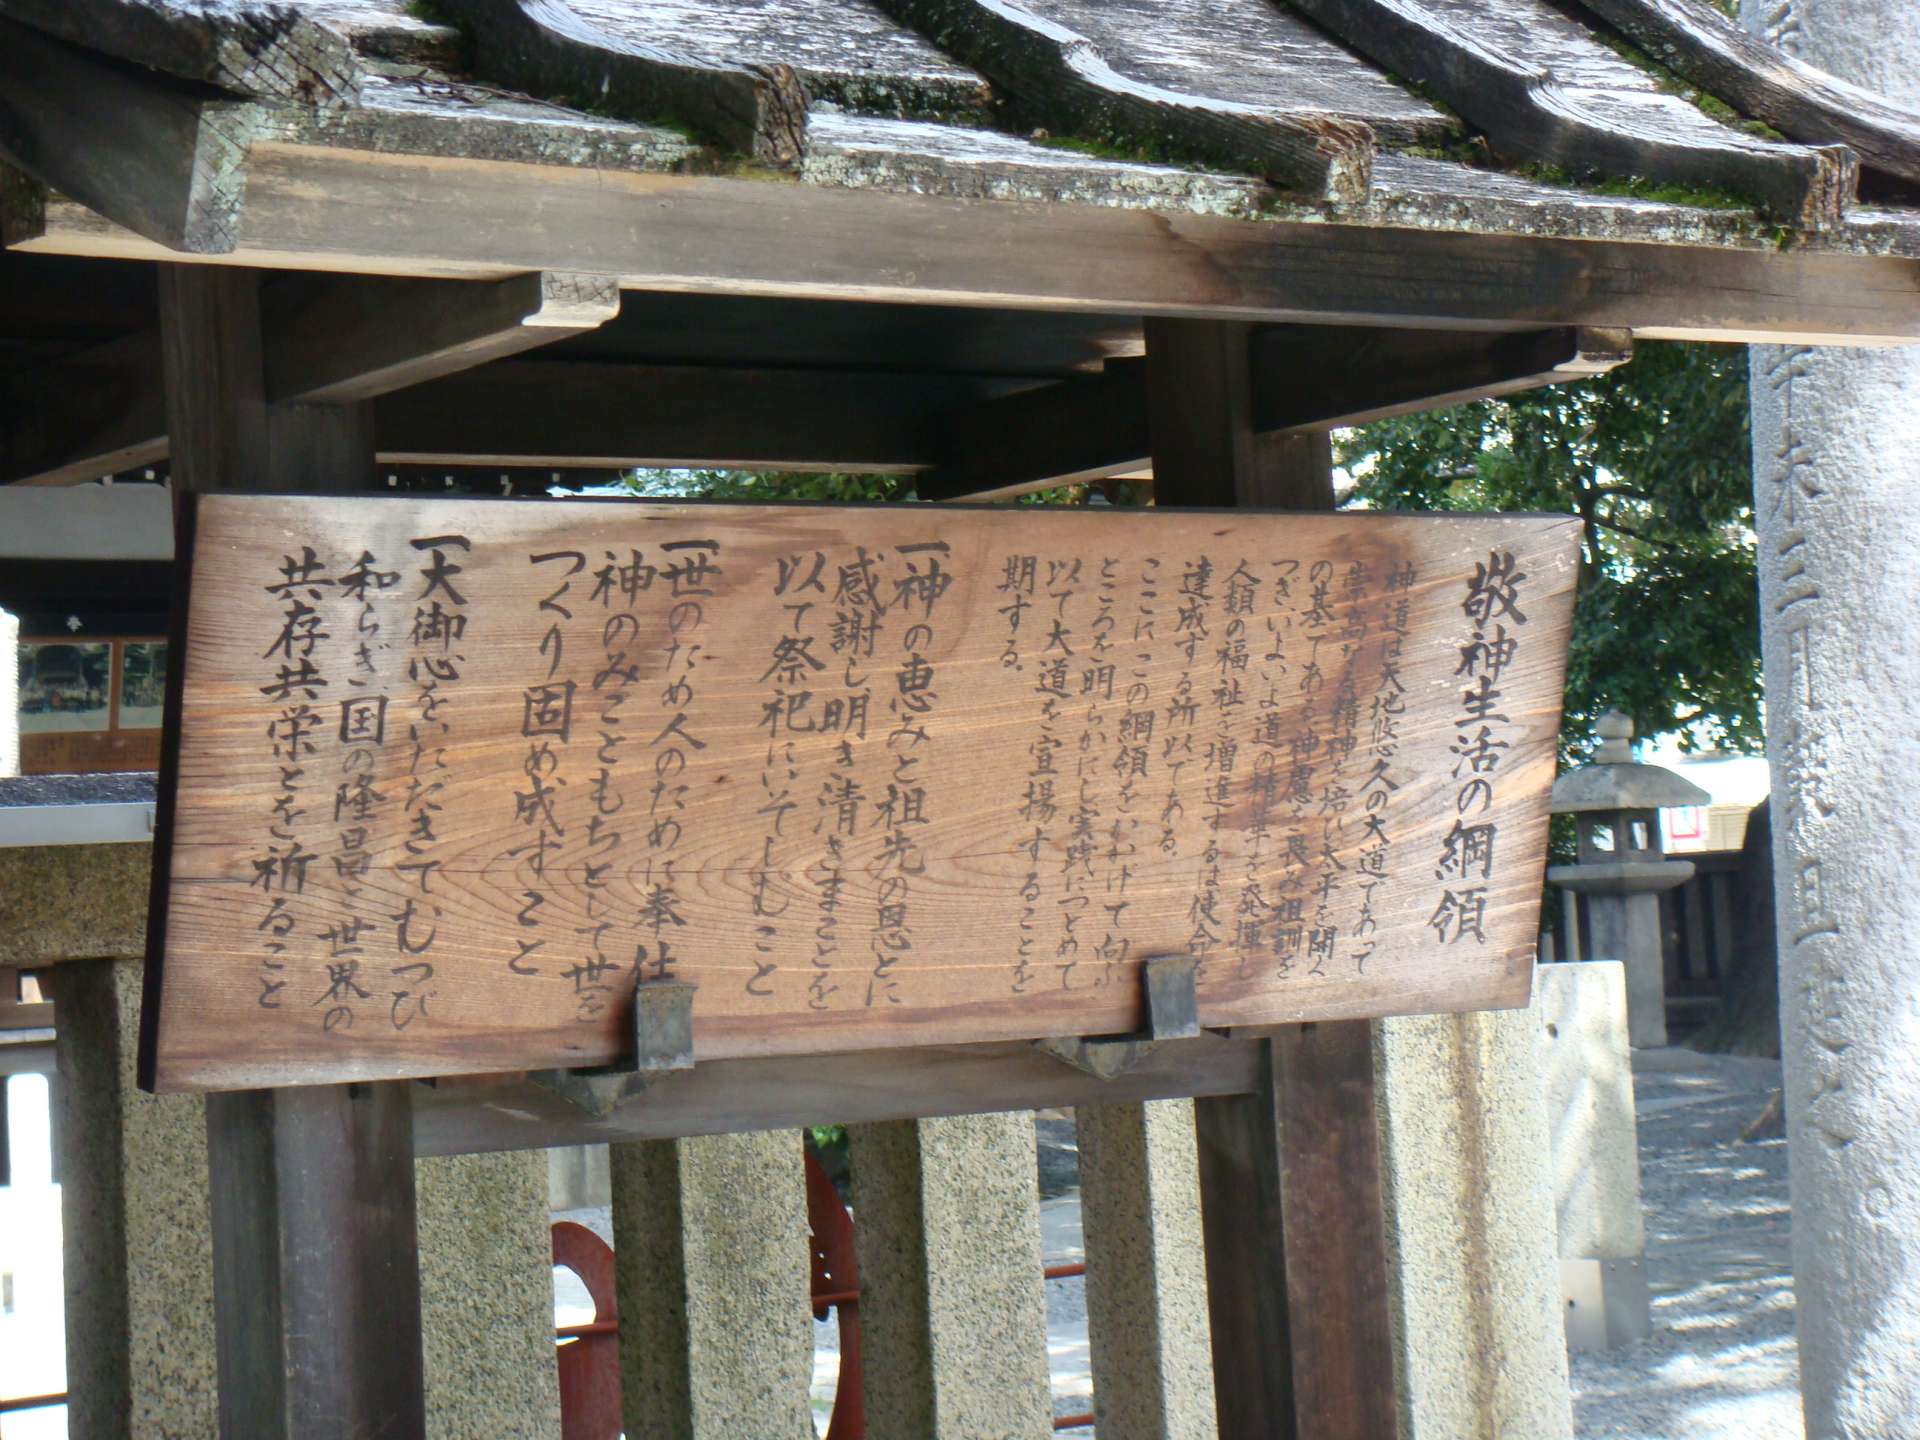 敬神生活の綱領
神道は天地悠久の大道であって
崇高なる精神を培い太平を開く
の基である神慮を畏み祖訓を
つぎいよいよ道の精華を発揮し
人類の福祉を増進するは使命を
達成する所以である。
ここにこの綱領をかかげて向ふ
ところを明らかにし実践につとめて
以て大道を宣揚することを
期する。
一神の恵みと祖先の恩とに
感謝し明き清きまことを
以て祭祀にいそしむこと
一世のため人のために奉仕
神のみこともちとして世を
つくり固め成すこと
一大御心をいただきてむつび
和らぎ国の隆昌と世界の
共存共栄とを祈ること